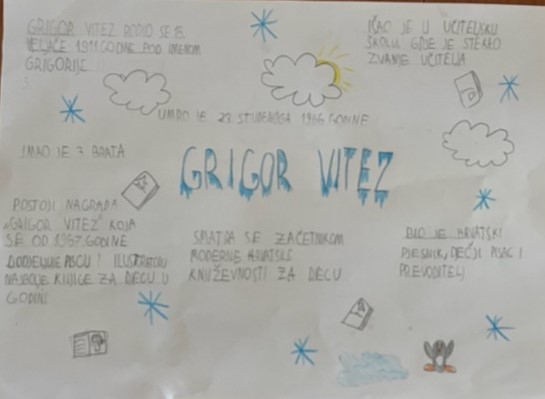 GRIGOR VITEZ RODIO SE 15.
VELJAČE 1911 GODINE POD IMENOM
GRIGORIJE
IŠAO JE U UČITELJSKU
ŠKOLU GDJE JE STEKAO
ZVANJE UČITELJA
UMRO JE 23. STUDENOGA 1966 GODINE
IMAO JE 3 BRATA
GRIGOR VITEZ
POSTOJI NAGRADA
„GRIGOR VITEZ" KOJA
SE OD 1967. GODINE
DODJELJUJE PISCU I ILUSTRATORU
NAJBOLJE KNJIGE ZA DECU U
GODINI
SMATRA SE ZAČETNIKOM
MODERNE HRVATSKE
KNJIŽEVNOSTI ZA DECU
BIO JE HRVATSKI
PJESNIK, DEČJI PISAC I
PREVODITELJ